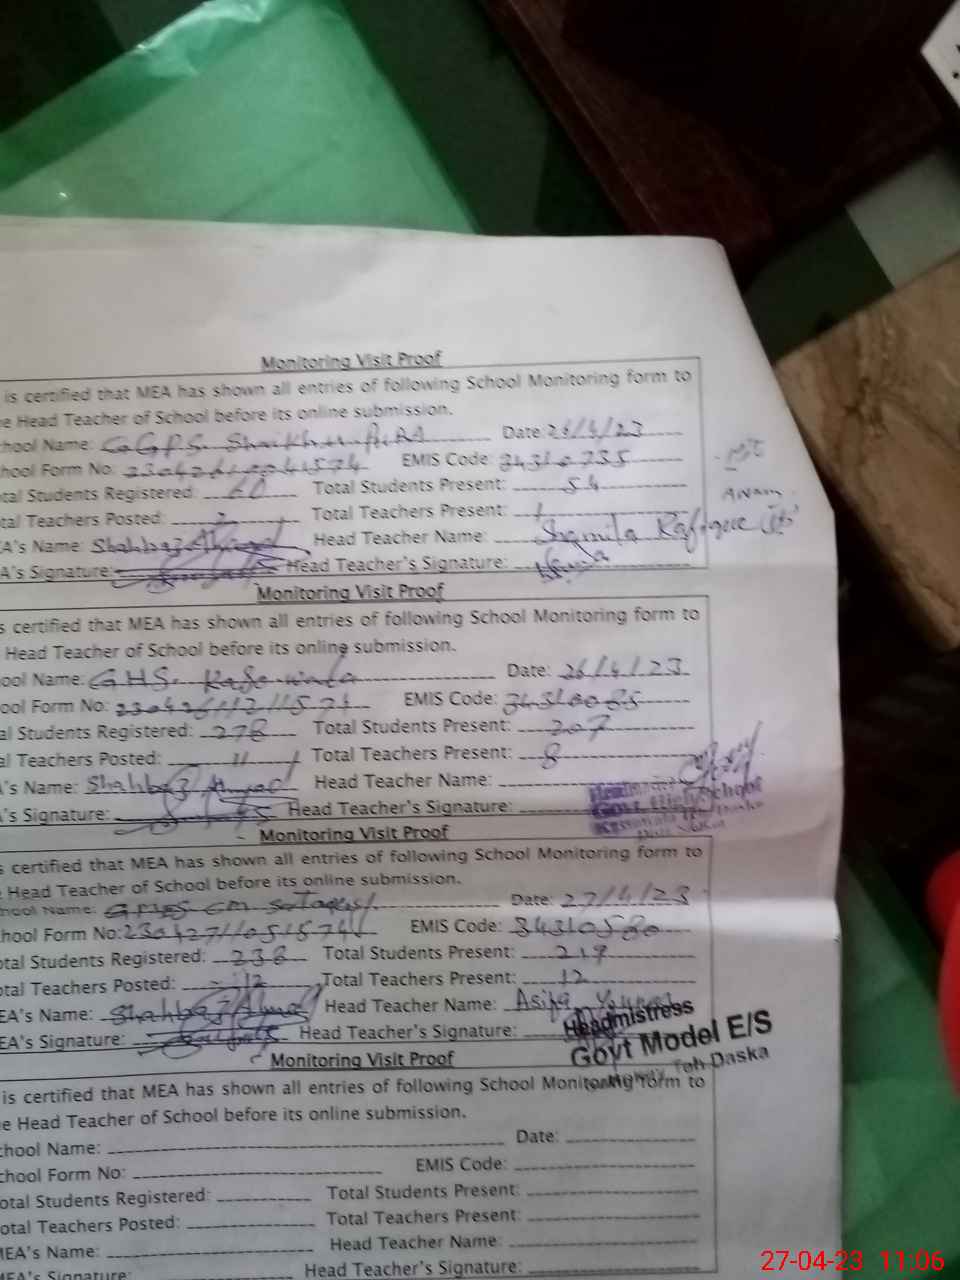 Monitoring Visit Proof
is certified that MEA has shown all entries of following School Monitoring form to
e Head Teacher of School before its online submission.
chool Name: GGPS. Date: 26/4/23
hool Form No. EMIS Code: 34310735
tal Students Registered: 60 Total Students Present: 54
tal Teachers Posted: 2 Total Teachers Present: 1
A's Name: Shahbaz Ahmad Head Teacher Name: Shamila Rafique
Anam
A's Signature: Head Teacher's Signature:
Monitoring Visit Proof
s certified that MEA has shown all entries of following School Monitoring form to
Head Teacher of School before its online submission.
ool Name: GHS. Date: 26/4/23
ool Form No: EMIS Code: 34310085
al Students Registered: 278 Total Students Present: 207
al Teachers Posted: 11 Total Teachers Present: 8
's Name: Shahbaz Ahmad Head Teacher Name:
A's Signature: Head Teacher's Signature:
Govt. High School
Monitoring Visit Proof
s certified that MEA has shown all entries of following School Monitoring form to
Head Teacher of School before its online submission.
hool Name: Date: 27/4/23
hool Form No: EMIS Code: 34310580
otal Students Registered: 238 Total Students Present: 217
otal Teachers Posted: 12 Total Teachers Present: 12
EA's Name: Shahbaz Ahmad Head Teacher Name: Asifa
EA's Signature: Head Teacher's Signature:
Headmistress
Govt Model E/S
Teh Daska
Monitoring Visit Proof
is certified that MEA has shown all entries of following School Monitoring form to
e Head Teacher of School before its online submission.
chool Name: Date:
chool Form No: EMIS Code:
otal Students Registered: Total Students Present:
otal Teachers Posted: Total Teachers Present:
MEA's Name: Head Teacher Name:
MEA's Signature: Head Teacher's Signature:
27-04-23 11:06